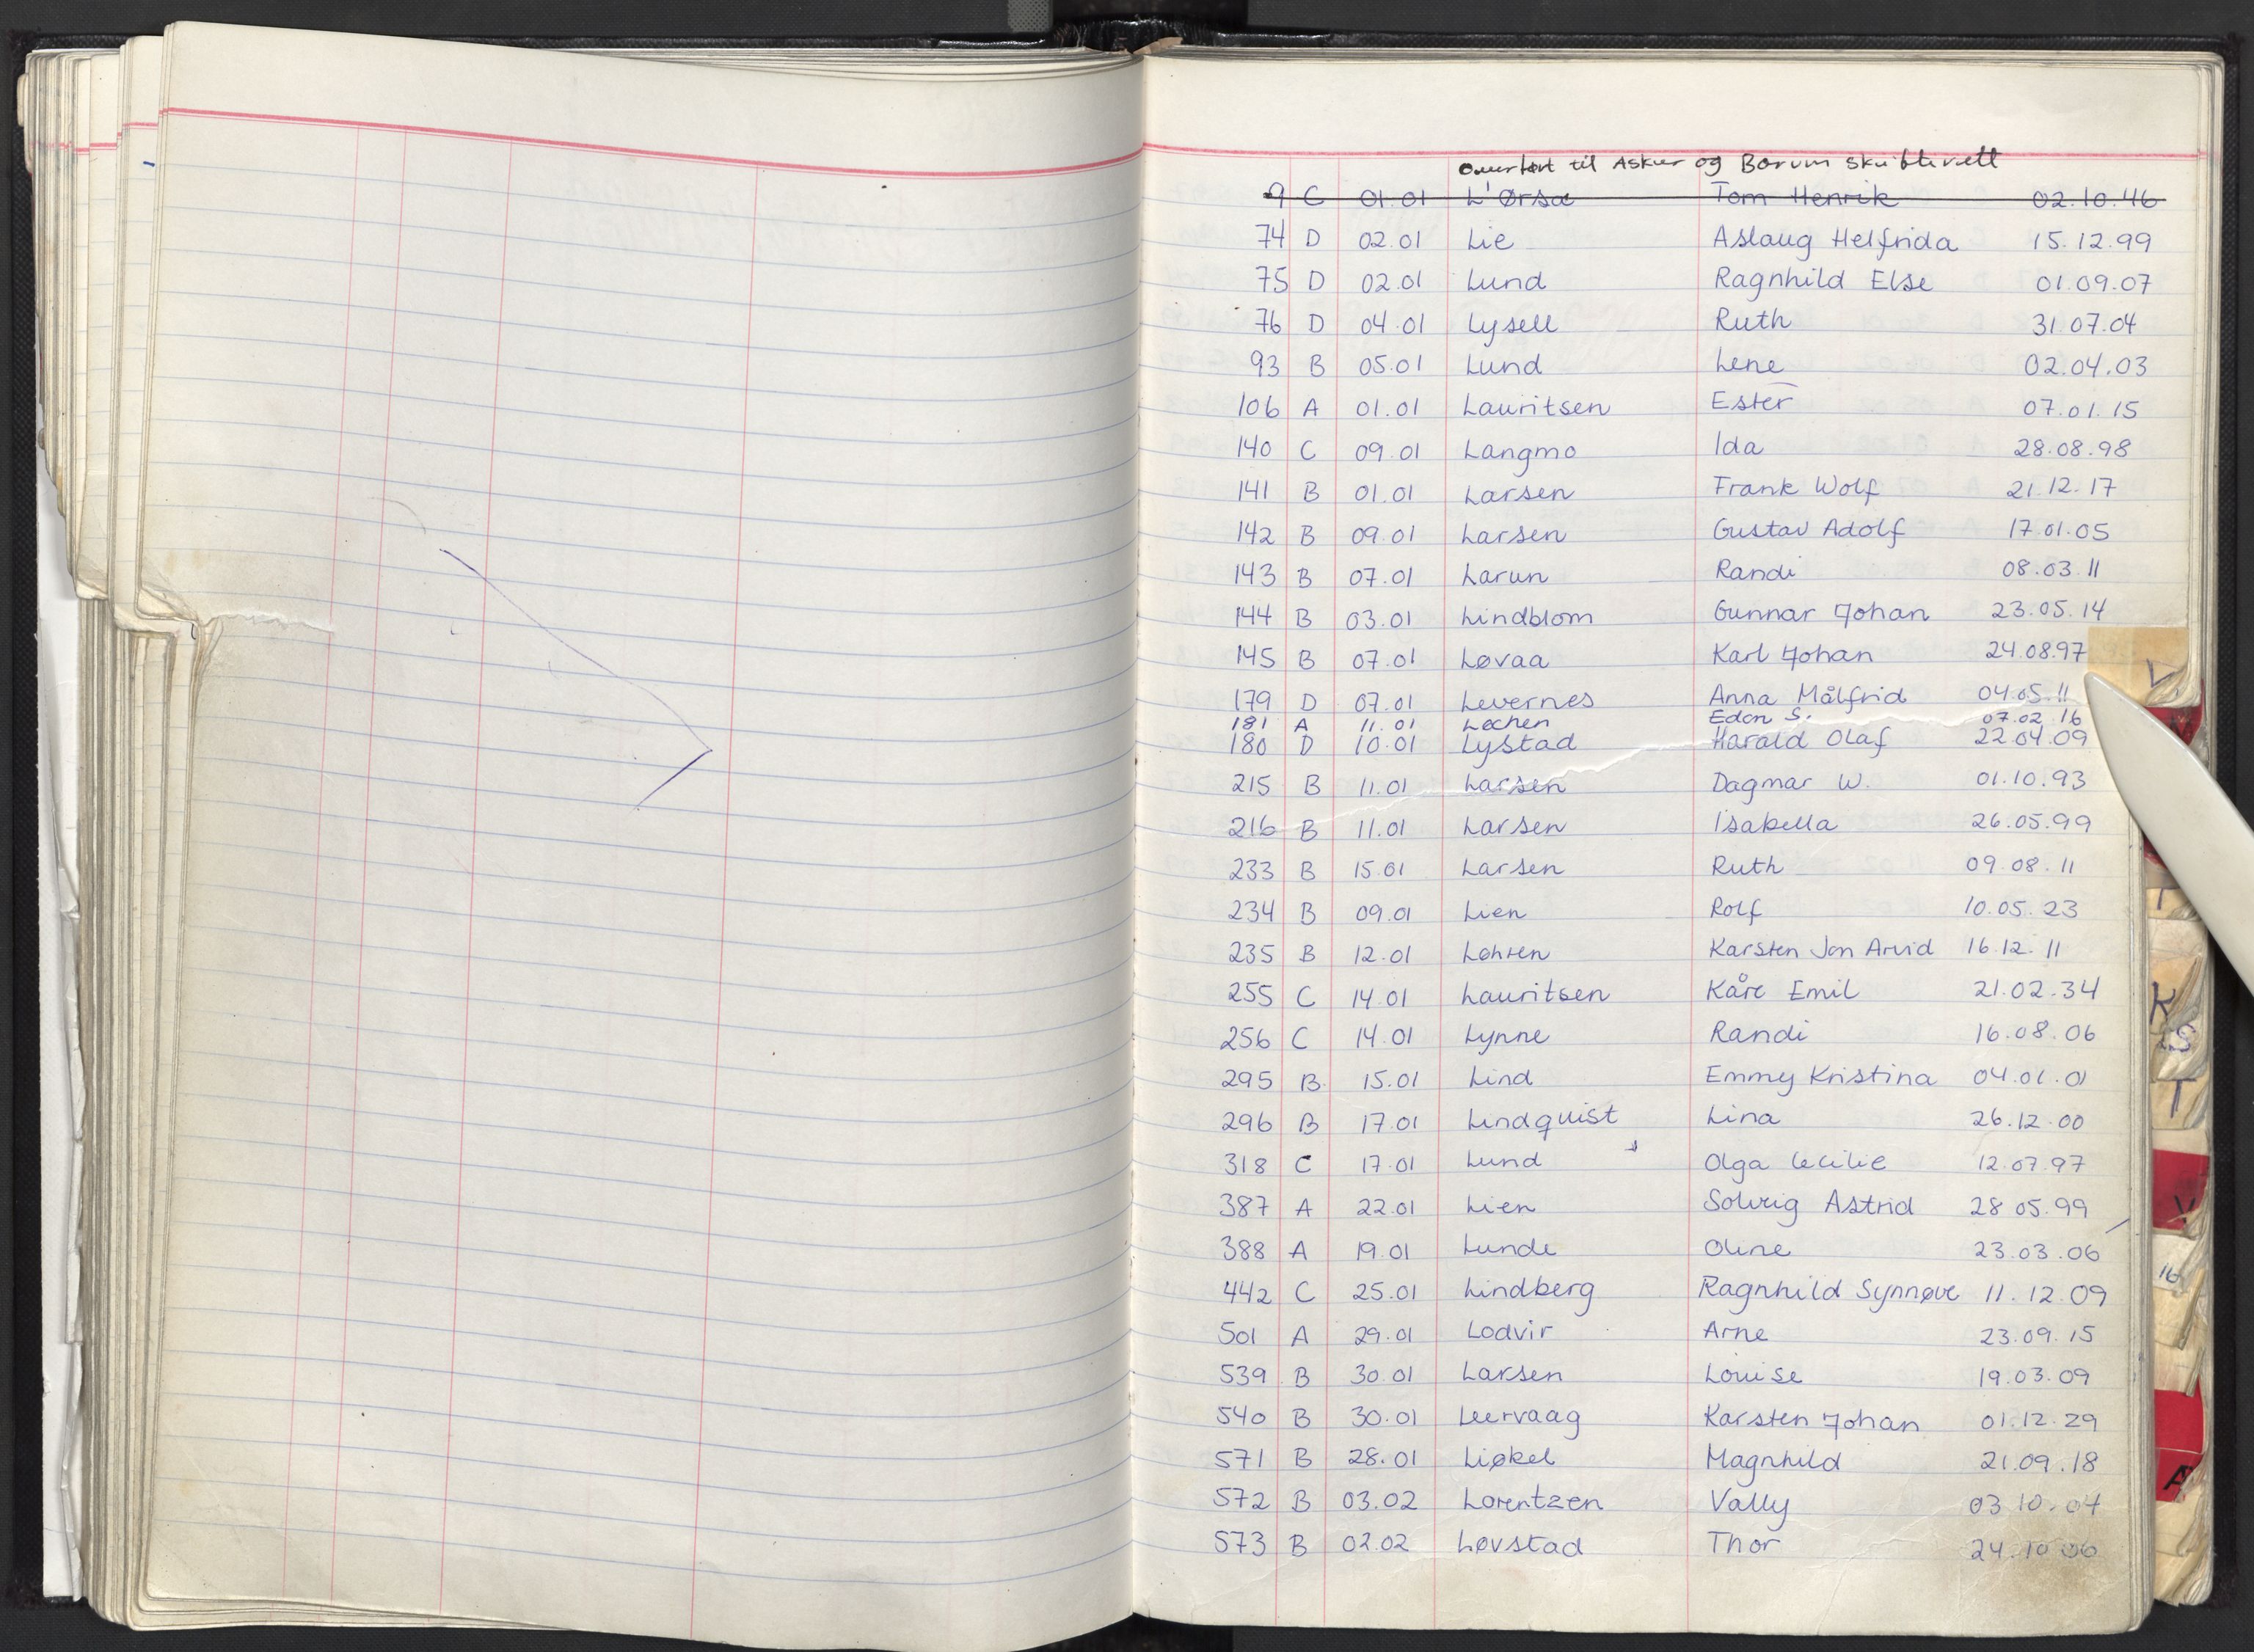 Overført til Asker og Bærum skifterett
9 C 01.01 L'Orsa Tom Henrik 02.10.46
74 D 02.01 Lie Aslaug Helfrida 15.12.99
75 D 02.01 Lund Ragnhild Else 01.09.07
76 D 04.01 Lysell Ruth 31.07.04
93 B 05.01 Lund Lene 02.04.03
106 A 01.01 Lauritsen Ester 07.01.15
140 C 09.01 Langmo Ida 28.08.98
141 B 01.01 Larsen Frank Wolf 21.12.17
142 B 09.01 Larsen Gustav Adolf 17.01.05
143 B 07.01 Larun Randi 08.03.11
144 B 03.01 Lindblom Gunnar Johan 23.05.14
145 B 07.01 Løvaa Karl Johan 24.08.97
179 D 07.01 Levernes Anna Målfrid 04.05.11
181 A 11.01 Løchen S. 07.02 16
180 D 10.01 Lystad Harald Olaf 22.04.09
215 B 11.01 Larsen Dagmar W. 01.10.93
216 B 11.01 Larsen Isabella 26.05.99
233 B 15.01 Larsen Ruth 09.08.11
234 B 09.01 Lien Rolf 10.05.23
235 B 12.01 Løhren Karsten Jan Arvid 16.12.11
255 C 14.01 Lauritsen Kåre Emil 21.02.34
256 C 14.01 Lynne Randi 16.08.06
295 B 15.01 Lind Emmy Kristina 04.01.01
296 B 17.01 Lindquist Lina 26.12.00
318 C 17.01 Lund Olga Cecilie 12.07.97
387 A 22.01 Lien Solveig Astrid 28 05.99
388 A 19.01 Lunde Oline 23.03.06
442 C 25.01 Lindberg Ragnhild Synnøve 11.12.09
501 A 29.01 Lodvir Arne 23.09.15
539 B 30.01 Larsen Louise 19.03.09
540 B 30.01 Leervaag Karsten Johan 01.12.29
571 B 28.01 Liøkel Magnhild 21.09.18
572 B 03.02 Lorentzen Vally 03.10.04
573 B 02.02 Løvstad Thor 24.10 06
V
T
K
S
T
V
16
A